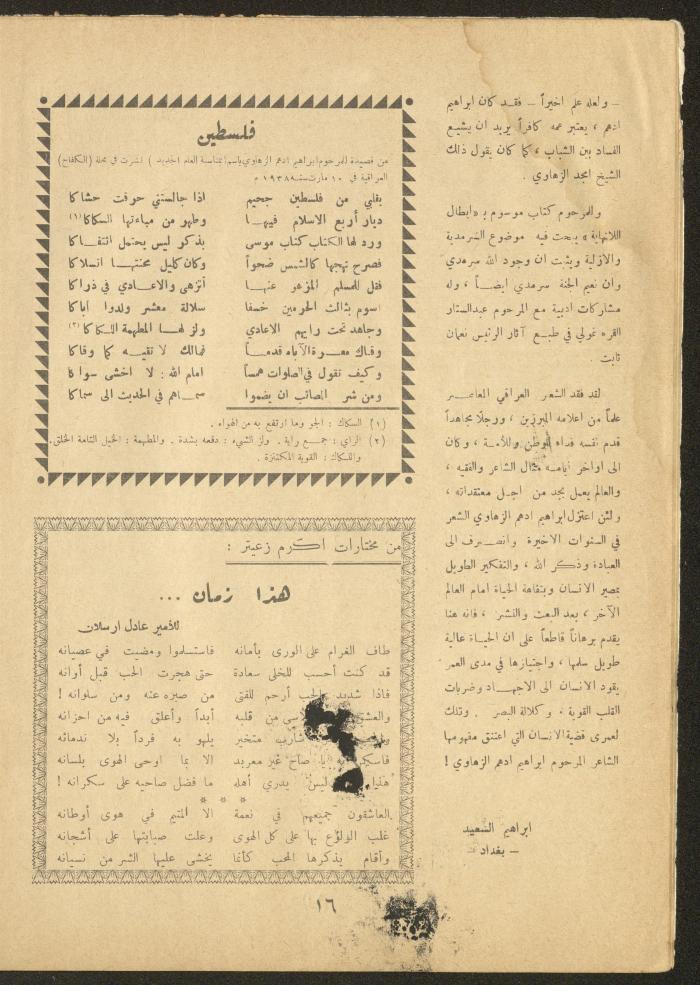 – ولعله علم اخيراً – فقد كان ابراهيم
ادهم ، يعتبر عمه كافراً يريد ان يشيع
الفساد بين الشباب ، كما كان يقول ذلك
الشيخ امجد الزهاوي .
وللمرحوم كتاب موسوم بـ « ابطال
اللانهاية » يبحث فيه موضوع السرمدية
والازلية ويثبت ان وجود الله سرمدي
وان نعيم الجنة سرمدي ايضاً ، وله
مشاركات ادبية مع المرحوم عبدالستار
القره غولي في طبع آثار الرئيس نعمان
ثابت .
لقد فقد الشعر العراقي المعاصر
علماً من اعلامه المبرزين ، ورجلا مجاهداً
قدم نفسه فداء للوطن وللأمة ، وكان
الى اواخر أيامه مثال الشاعر والفقيه ،
والعالم يعمل بجد من اجل معتقداته ،
ولئن اعتزل ابراهيم ادهم الزهاوي الشعر
في السنوات الاخيرة وانصرف الى
العبادة وذكر الله ، والتفكير الطويل
بمصير الانسان وبتفاهة الحياة امام العالم
الآخر ، بعد البعث والنشر ، فانه هنا
يقدم برهاناً قاطعاً على ان الحياة عالية
طويل سلمها ، واجتيازها في مدى العمر
يقود الانسان الى الاجهاد وضربات
القلب القوية ، وكلالة البصر . وتلك
لعمرى قضية الانسان التي اعتنق مفهومها
الشاعر المرحوم ابراهيم ادهم الزهاوي !
ابراهيم السعيد
– بغداد –
فلسطين
من قصيدة للمرحوم ابراهيم ادهم الزهاوي باسم ( بمناسبة العام الجديد ) نشرت في مجلة (الكفاح)
العراقية في ١٠ مارت سنة ١٩٣٨ م
بقلبي من فلسطين جحيم اذا جالستني حرقت حشاكا
ديار أربع الاسلام فيها وطهو من مباءتها السكاكا (١)
ورد لها الكتاب كتاب موسى بذكر ليس يحتمل انتفاكا
فصرح نهجها كالشمس ضحواً وكان كليل محنتها انسلاكا
فقل للمسلم المزهر عنها أتزهى والاعادي في ذراكا
اسوم بثالث الحرمين خسفا سلالة معشر ولدوا اباكا
وجاهد تحت رايهم الاعادي ولز لها المطهمة اللكاكا (٢)
وقاك معرة الآباء قدماً فمالك لا تقيه كما وقاكا
وكيف تقول في الصلوات همساً امام الله : لا اخشى سواكا
ومن شر المصائب ان يضموا سماهم في الحديث الى سماكا
(١) السكاك : الجو وما ارتفع به من الهواء .
(٢) الراي : جمع راية . ولز الشيء : دفعه بشدة . والمطهمة : الخيل التامة الخلق.
واللكاك : القوية المكتنزة .
من مختارات اكرم زعيتر :
هذا زمان ...
للأمير عادل ارسلان
طاف الغرام على الورى بأمانه فاستسلموا ومضيت في عصيانه
قد كنت أحسب للخلى سعادة حتى هجرت الحب قبل أوانه
فاذا شديد الحب أرحم للفتى من صبره عنه ومن سلوانه !
من قلبه أبداً وأعلق فيه من احزانه
شارب متخير يلهو به فرداً بلا ندمائه
يا صاح غير معربد الا بما اوحى الهوى بلسانه
هذا ليس يدري أهله ما فضل صاحبه على سكرانه !
* * *
العاشقون جميعهم في نعمة الا المتيم في هوى أوطانه
غلب الولوع بها على كل الهوى وعلت صبابتها على أشجانه
وأقام يذكرها المحب كأنما يخشى عليها الشر من نسيانه
١٦